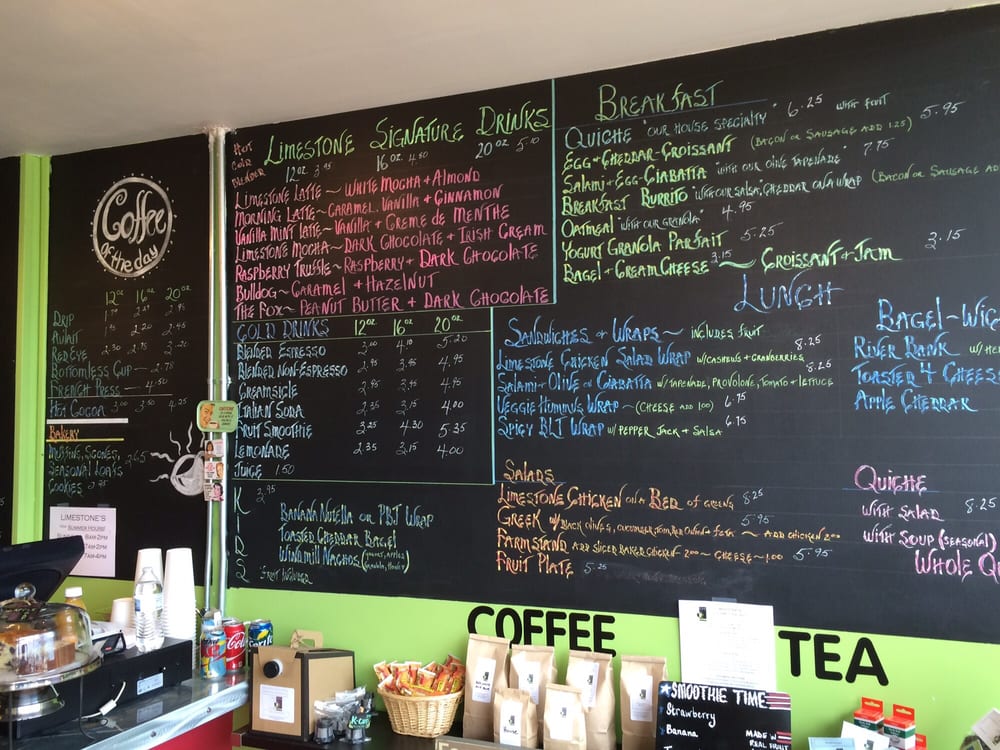 Coffee
of the day
12oz 16oz 20oz
Drip
Au Lait 1.95 2.20 2.45
Red Eye 2.30 2.75 3.20
Bottomless Cup — 2.75
French Press — 4.50
Hot Cocoa 3.00 3.50 4.25
Bakery
Muffins, Scones, 2.65
Seasonal Loafs
Cookies
LIMESTONE'S
Summer Hours!
Hot
Cold
Blended
Limestone Signature Drinks
12oz 3.95 16oz 4.50 20oz 5.10
Limestone Latte ~ White Mocha + Almond
Morning Latte ~ Caramel, Vanilla + Cinnamon
Vanilla Mint Latte ~ Vanilla + Creme de Menthe
Limestone Mocha ~ Dark Chocolate + Irish Cream
Raspberry Truffle ~ Raspberry + Dark Chocolate
Bulldog ~ Caramel + Hazelnut
The Fox ~ Peanut Butter + Dark Chocolate
Cold Drinks 12oz 16oz 20oz
Blended Espresso 3.00 4.10 5.20
Blended Non-Espresso 2.95 3.95 4.95
Creamsicle 2.95 3.95 4.95
Italian Soda 2.35 3.15 4.00
Fruit Smoothie 3.25 4.30 5.35
Lemonade 2.35 3.15 4.00
Juice 1.50
KIDS
3.95
Banana Nutella or PBJ Wrap
Toasted Cheddar Bagel
Windmill Nachos
Fruit Included
Breakfast
Quiche "Our House Specialty" 6.25 with fruit
Egg + Cheddar-Croissant (Bacon or Sausage add 1.25) 5.95
Salami + Egg-Ciabatta "with our olive tapenade" 7.75
Breakfast Burrito with our salsa, cheddar on a wrap (Bacon or Sausage ad
Oatmeal "with our granola" 4.95
Yogurt Granola Parfait 5.25
Bagel + Cream Cheese 3.15 ~ Croissant + Jam 3.15
Lunch
Sandwiches + Wraps ~ includes fruit
Limestone Chicken Salad Wrap w/cashews + cranberries 8.25
Salami + Olive on Ciabatta w/tapenade, provolone, tomato + lettuce 8.25
Veggie Hummus Wrap ~ (cheese add 1.00) 6.75
Spicy BLT Wrap w/ pepper jack + salsa 6.75
Bagel-Wic
River Bank w/ he
Toasted 4 Chees
Apple Cheddar
Salads
Limestone Chicken on a Bed of greens 8.25
Greek w/ black olives, cucumber, tom, red onion + feta ~ add chicken 2.00 5.95
Farmstand add sliced baked chicken 2.00 ~ cheese ~ 1.00 5.95
Fruit Plate 5.25
Quiche
with Salad 8.25
with Soup (seasonal)
Whole Qu
COFFEE
TEA
Coca-Cola
Sprite
★SMOOTHIE TIME
Strawberry
Banana
MADE W
REAL FRUIT